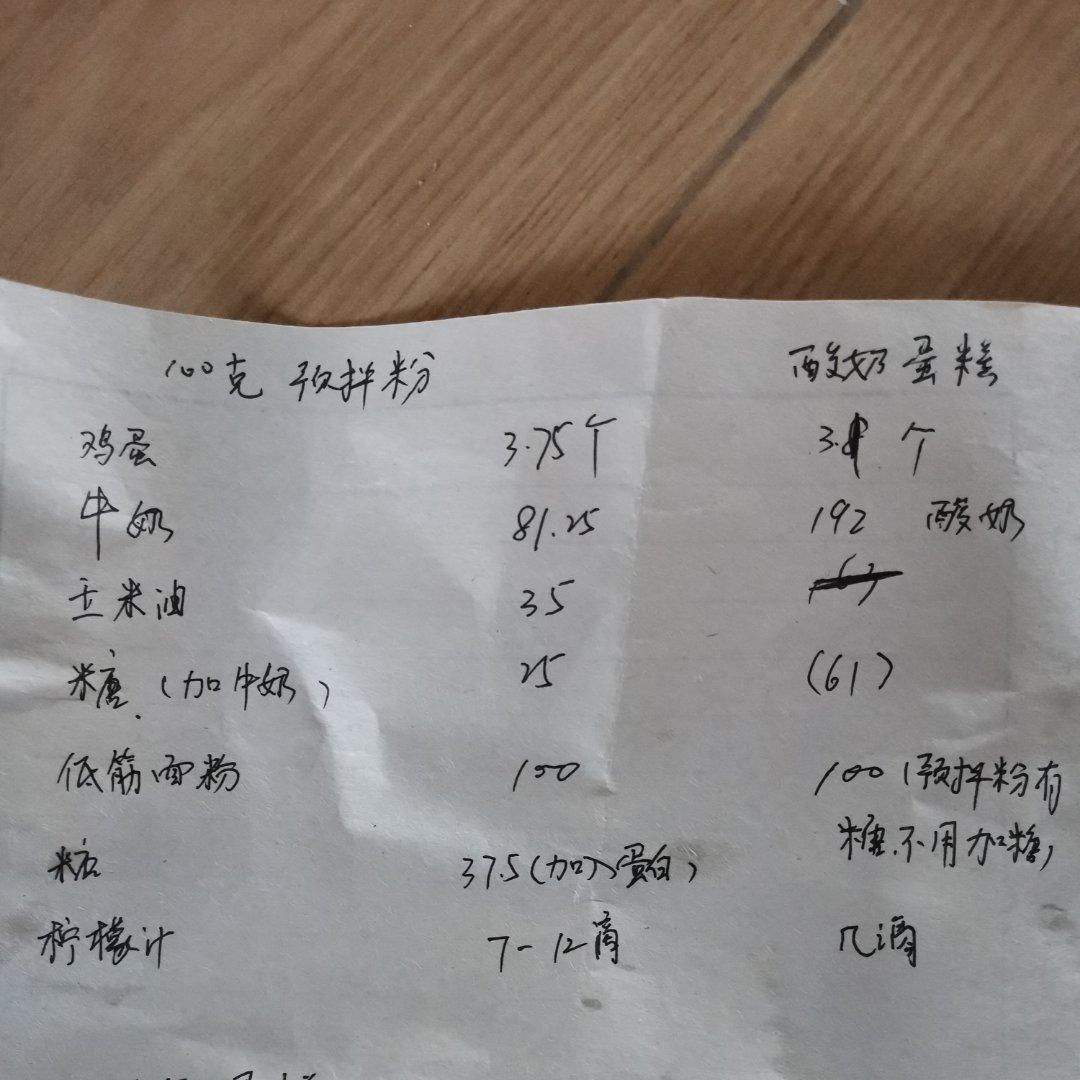 100克 预拌粉 酸奶蛋糕
鸡蛋 3.75个 3. 个
牛奶 81.25 192 酸奶
玉米油 35
糖(加牛奶) 25 (61)
低筋面粉 100 100(预拌粉有
糖.不用加糖)
糖 37.5(加入蛋白)
柠檬汁 7-12滴 几滴